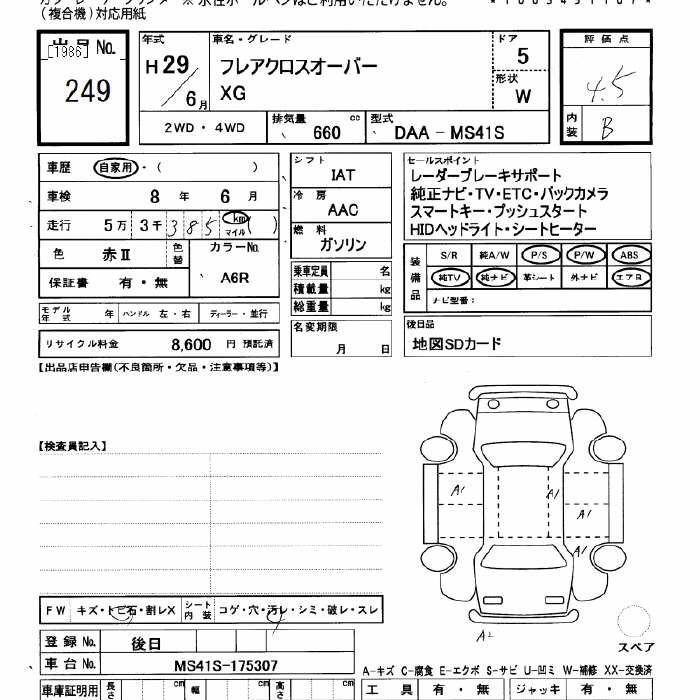 (複合機)対応用紙
出品 No.
[1986]
249
年式
H 29 / 6 月
車名・グレード
フレアクロスオーバー
XG
ドア
5
形状
W
評価点
4.5
内装
B
2WD・4WD
排気量 660 cc
型式
DAA - MS41S
車歴 自家用・( )
車検 8 年 6 月
走行 5万 3千 385 km マイル ( )
色 赤Ⅱ 色替
カラーNo.
A6R
保証書 有・無
モデル年式 年 ハンドル 左・右 ディーラー・並行
リサイクル料金 8,600 円 預託済
シフト
IAT
冷房
AAC
燃料
ガソリン
乗車定員 名
積載量 kg
総重量 kg
名変期限
月 日
セールスポイント
レーダーブレーキサポート
純正ナビ・TV・ETC・バックカメラ
スマートキー・プッシュスタート
HIDヘッドライト・シートヒーター
装備品
S/R 純A/W P/S P/W ABS
純TV 純ナビ 革シート 外ナビ エアB
ナビ型番:
後日品
地図SDカード
【出品店申告欄(不良箇所・欠品・注意事項等)】
【検査員記入】
A1
A1
A1
A1
A2
スペア
FW キズ・トビ石・割レX
シート内装 コゲ・穴・汚レ・シミ・破レ・スレ
登録 No. 後日
車台 No. MS41S-175307
A-キズ C-腐食 E-エクボ S-サビ U-凹ミ W-補修 XX-交換済
車庫証明用 長さ cm 幅 cm 高さ cm
工具 有・無 ジャッキ 有・無